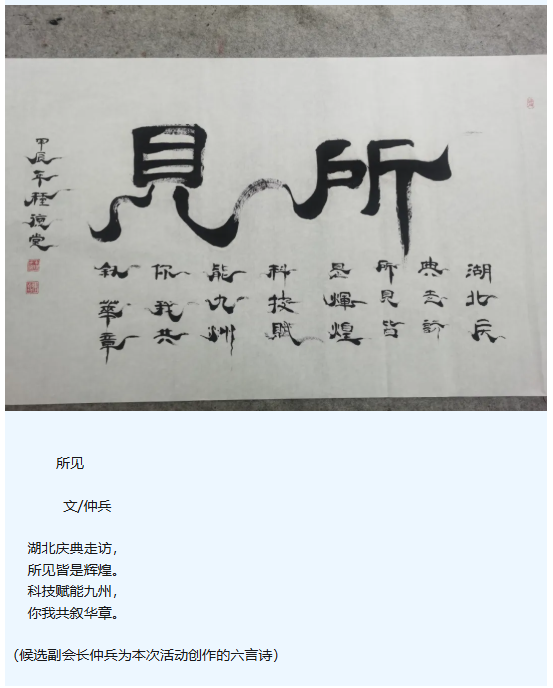 所見
湖北庆
典走訪
所見皆
是輝煌
科技賦
能九州
你我共
叙華章
甲辰年程
所见
文/仲兵
湖北庆典走访，
所见皆是辉煌。
科技赋能九州，
你我共叙华章。
（候选副会长仲兵为本次活动创作的六言诗）